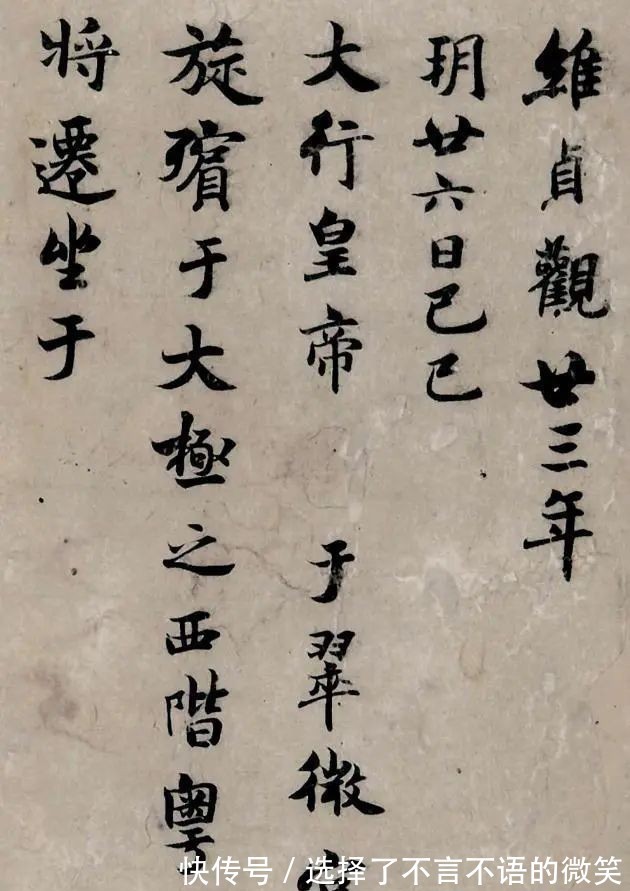 維貞觀廿三年
玥廿六日己巳
大行皇帝 于翠微
旋殯于大極之西階粵
將遷坐于
快传号/选择了不言不语的微笑